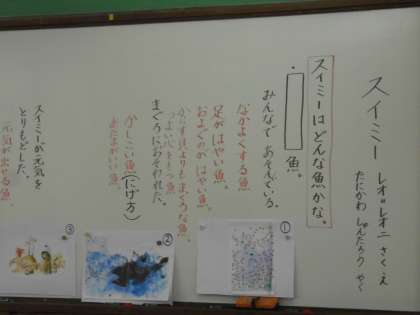 スイミー
レオ=レオニ さく え
たにかわ しゅんたろう やく
スイミーはどんな魚かな。
魚。
みんなで あそんでいる。
なかよくする魚
足がはやい魚。
およぐのがはやい魚。
からす貝よりもまっくろな魚。
つよい心をもつ魚
まぐろにおそわれた。
かしこい魚(にげ方)
あたまがいい魚。
スイミーが元気を
とりもどした。
元気が出せる魚。
①
②
③